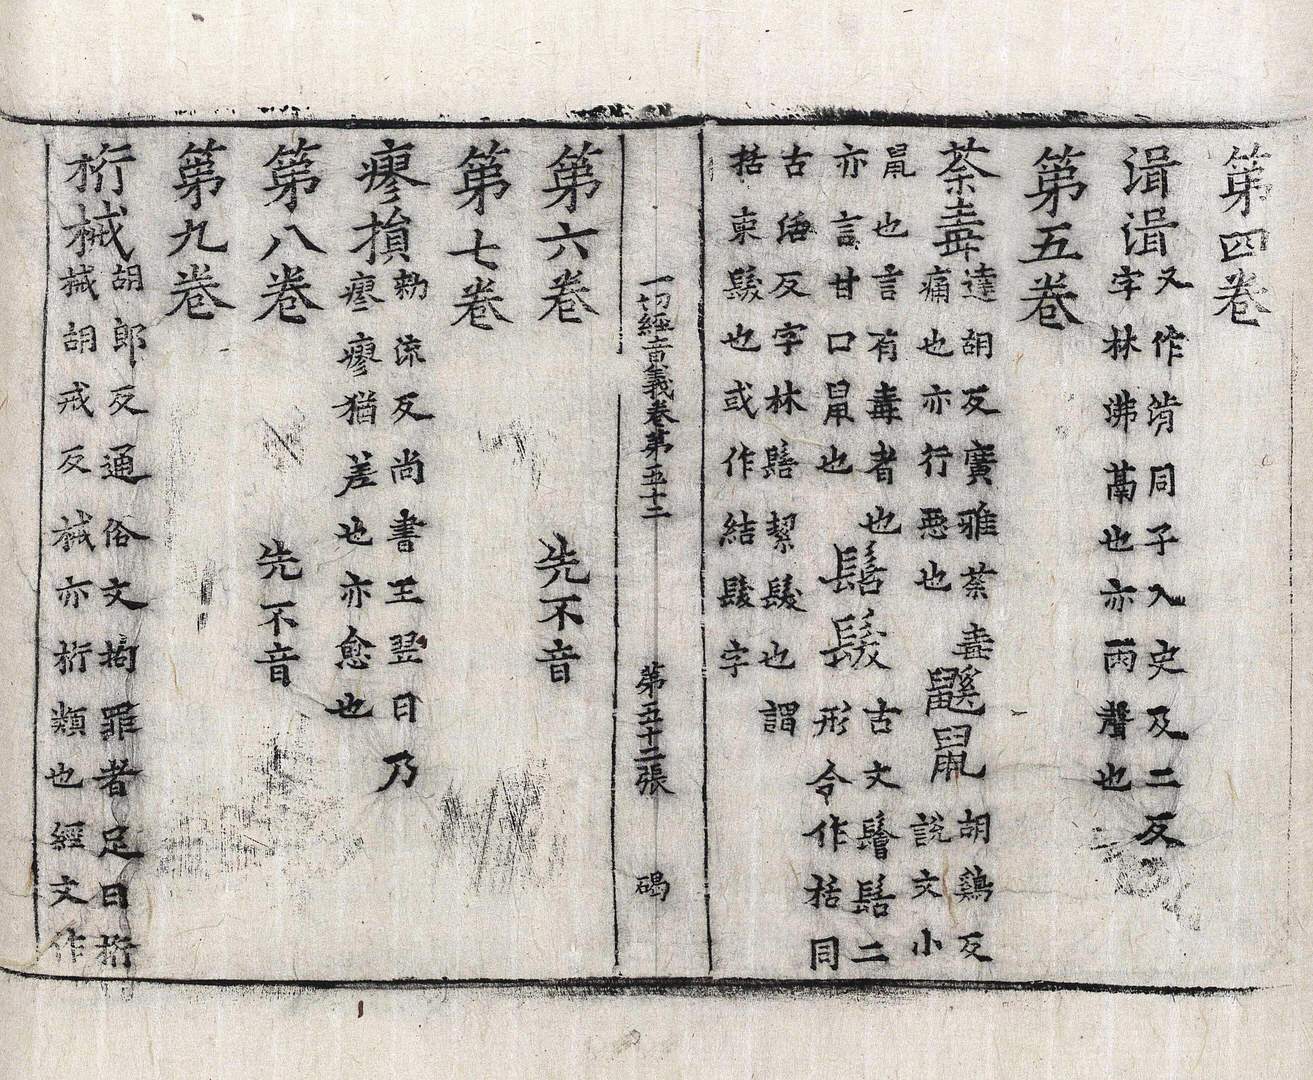 第四卷
湒湒
又作湇同子入史及二反
字林沸鬲也亦雨聲也
第五卷
荼毒
達胡反廣雅荼毒
痛也亦行惡也
鼷鼠
胡鷄反
說文小
鼠也言有毒者也
亦言甘口鼠也
髻髮
古文鬠髻二
形今作括同
古活反字林髻絜髮也謂
括束髮也或作結髮字
一切經音義卷第五十二
第五十二張
碣
第六卷
先不音
第七卷
瘳損
勑流反尚書王翌日乃
瘳瘳猶差也亦愈也
第八卷
先不音
第九卷
桁械
胡郎反通俗文拘罪者足曰桁
械胡戒反械亦桁類也經文作